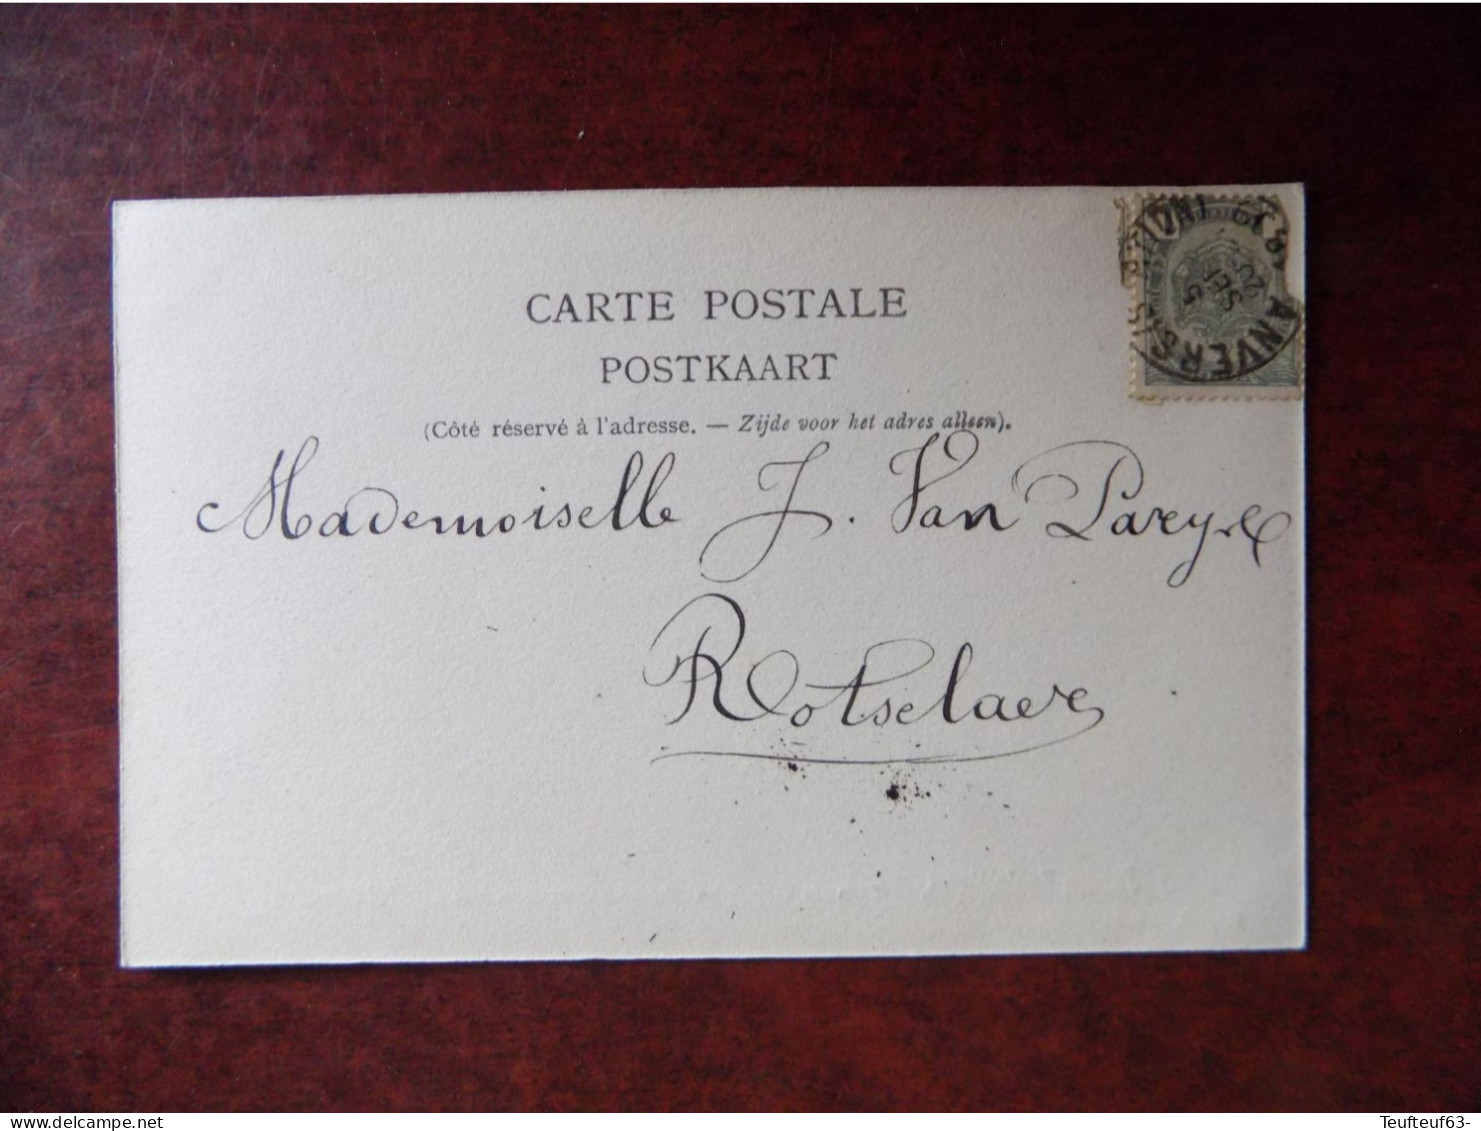 CARTE POSTALE
POSTKAART
(Côté réservé à l'adresse. — Zijde voor het adres alleen).
Mademoiselle J. Van Pareys
Rotselaer
ANVERS
Teufteuf63-